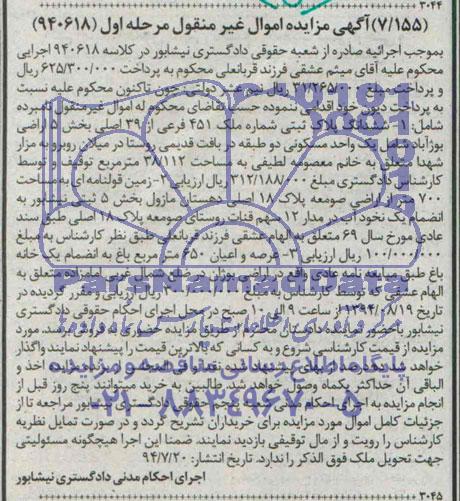 ۳۰۴۴
(۷/۱۵۵) آگهی مزایده اموال غیر منقول مرحله اول (۹۴۰۶۱۸)
بموجب اجرائیه صادره از شعبه حقوقی دادگستری نیشابور در کلاسه ۹۴۰۶۱۸ اجرایی
محکوم علیه آقای میثم عشقی فرزند قربانعلی محکوم به پرداخت ۶۲۵/۳۰۰/۰۰۰ ریال
و پرداخت مبلغ ریال نیم عشر دولتی چون تاکنون محکوم علیه نسبت
به پرداخت دیون خود اقدامی ننموده حسب تقاضای محکوم له اموال غیر منقول نامبرده
شامل: ۱- ششدانگ پلاک ثبتی شماره ملک ۴۵۱ فرعی از ۳۹ اصلی بخش ۵ اراضی
بوژآباد شامل یک واحد مسکونی دو طبقه در بافت قدیمی روستا در میلان روبرو به مزار
شهدا متعلق به خانم معصومه لطیفی به مساحت ۳۸۱۱۲ مترمربع توقیف و توسط
کارشناس دادگستری مبلغ ۳۱۲/۱۸۸/۰۰۰ ریال ارزیابی ۲- زمین قولنامه ای به مساحت
۷۰۰ متر اراضی صومعه پلاک ۱۸ اصلی دهستان مازول بخش ۵ ثبت نیشابور به
انضمام یک نخود آب در مدار ۱۲ سهم قنات روستای صومعه پلاک ۱۸ اصلی طبق سند
عادی مورخ سال ۶۹ متعلق به الهام عشقی فرزند قربانعلی طبق نظر کارشناس به مبلغ
۱۰۰/۰۰۰/۰۰۰ ریال ارزیابی ۳- عرصه و اعیان ۶۵۰ متر مربع باغ به انضمام یک خانه
باغ طبق مبایعه نامه عادی واقع در اراضی بوژان در ضلع شمال غربی امامزاده متعلق به
الهام عشقی که توسط کارشناس به مبلغ ریال ارزیابی و مقرر گردیده در
تاریخ ۱۳۹۴/۰۸/۱۹ از ساعت ۹ الی ۱۰ صبح در محل اجرای احکام حقوقی دادگستری
نیشابور با حضور نماینده دادستان از طریق مزایده حضوری به فروش برسد. مورد
مزایده از قیمت کارشناسی شروع و به کسانی که بالاترین قیمت را پیشنهاد نمایند واگذار
خواهد شد. ده درصد از بهای پیشنهاد شده نقدا فی المجلس از برنده مزایده اخذ و
الباقی آن حداکثر یکماه وصول خواهد شد. طالبین به خرید میتوانند پنج روز قبل از
انجام مزایده به اجرای احکام حقوقی دادگستری نیشابور مراجعه تا از
جزئیات کامل اموال مورد مزایده برای خریداران تشریح گردد و در صورت تمایل نظریه
کارشناس را رویت و از مال توقیفی بازدید نمایند. ضمنا این اجرا هیچگونه مسئولیتی
جهت تحویل ملک فوق الذکر را ندارد. تاریخ انتشار: ۹۴/۷/۲۰
اجرای احکام مدنی دادگستری نیشابور
۳۰۴۵
ParsNamadData
پایگاه اطلاع رسانی مناقصه و مزایده
۰۲۱-۸۸۳۴۹۶۷۰-۵